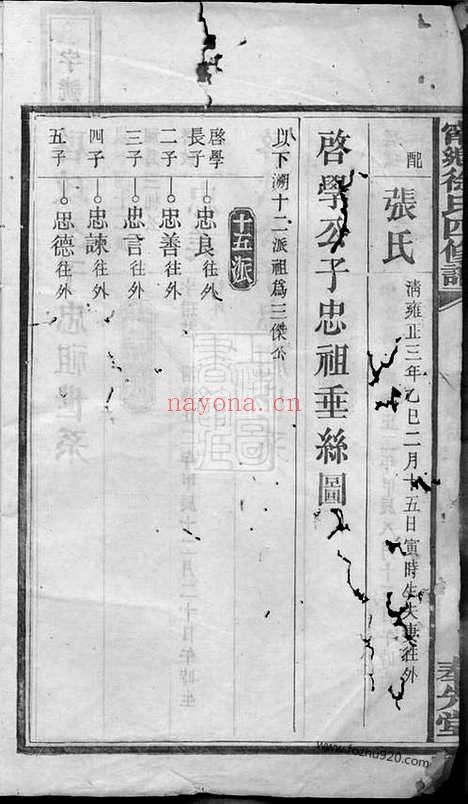 甯鄉徐氏四修譜
奉先堂
配
張氏
清雍正三年乙巳二月十五日寅時生夫妻往外
啓學公子忠祖垂絲圖
以下溯十二派祖爲三傑公
十五派
啓學
長子
忠良往外
二子
忠善往外
三子
忠言往外
四子
忠諫往外
五子
思德往外
字號
nayona.cn
www.fozhu920.com